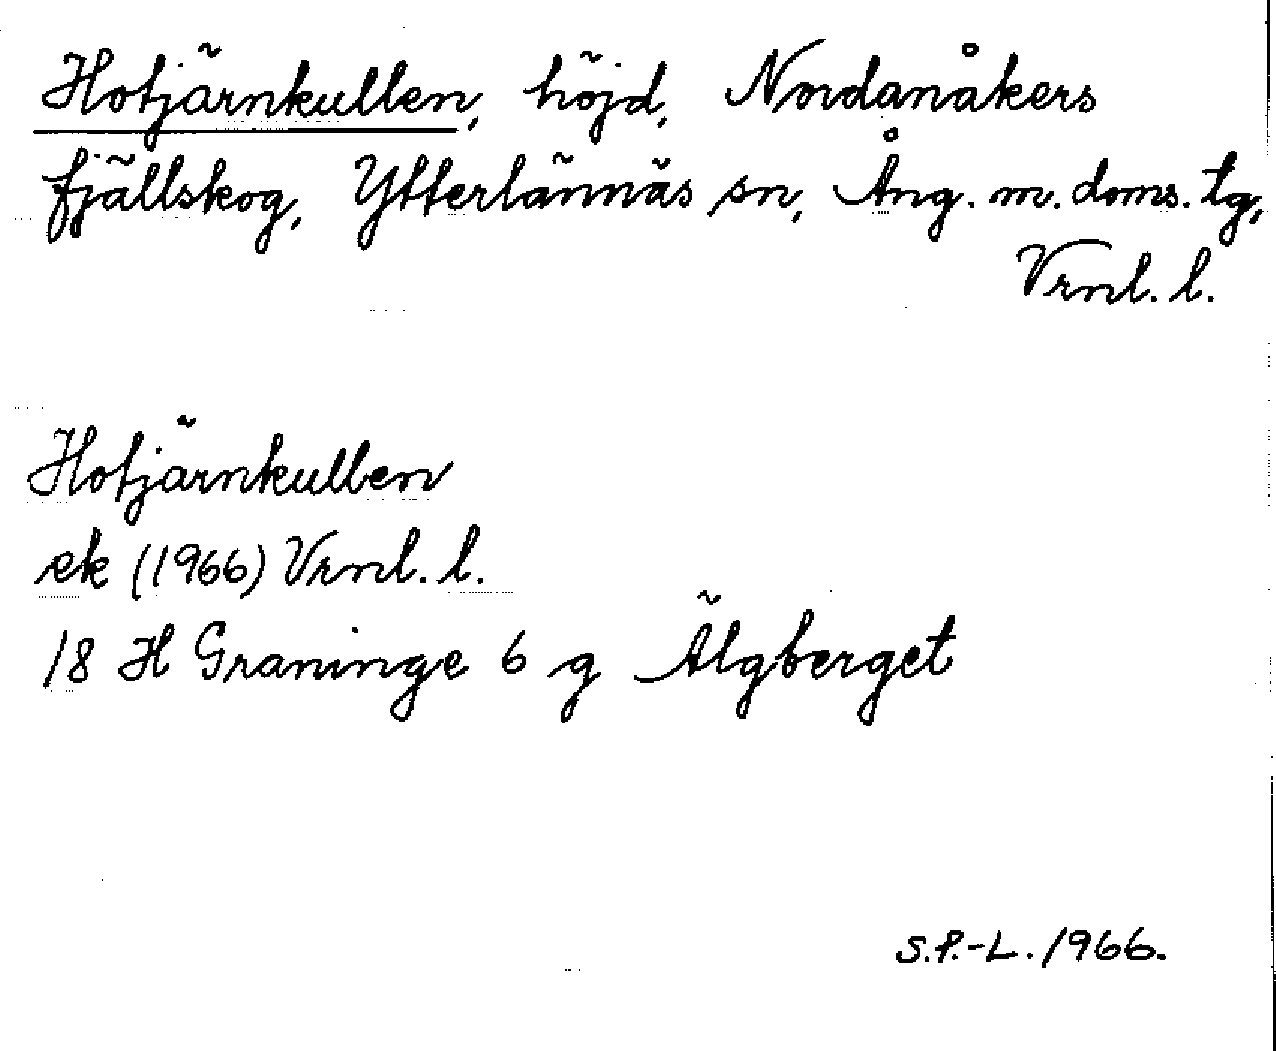 Hotjärnkullen, höjd, Nordanåkers
fjällskog, Ytterlännäs sn, Ång. m. doms. tg,
Vrnl. l.
Hotjärnkullen
ek (1966) Vrnl. l.
18 H Graninge 6 g Älgberget
S.P.-L. 1966.